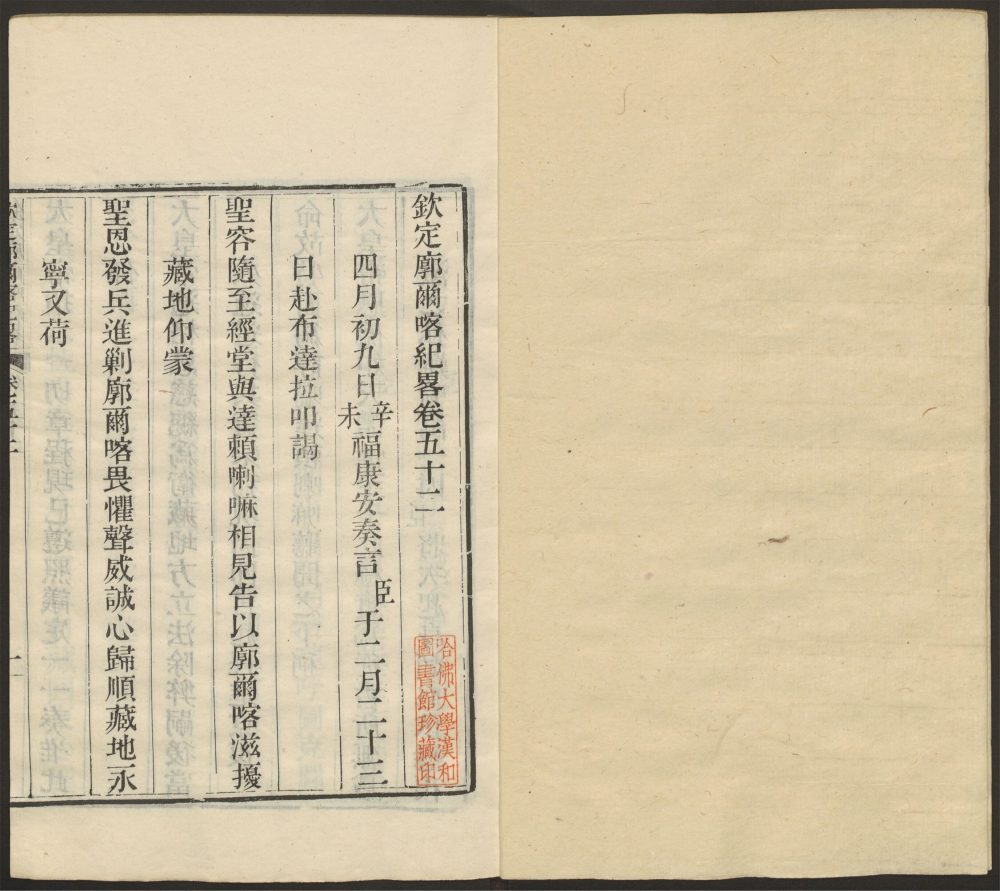 欽定廓爾喀紀畧卷五十二
四月初九日辛未福康安奏言臣于二月二十三
日赴布達拉叩謁
聖容隨至經堂與達賴喇嘛相見告以廓爾喀滋擾
藏地仰蒙
聖恩發兵進剿廓爾喀畏懼聲威誠心歸順藏地永
寧又荷
欽定廓爾喀紀畧
哈佛大學漢和
圖書館珍藏印